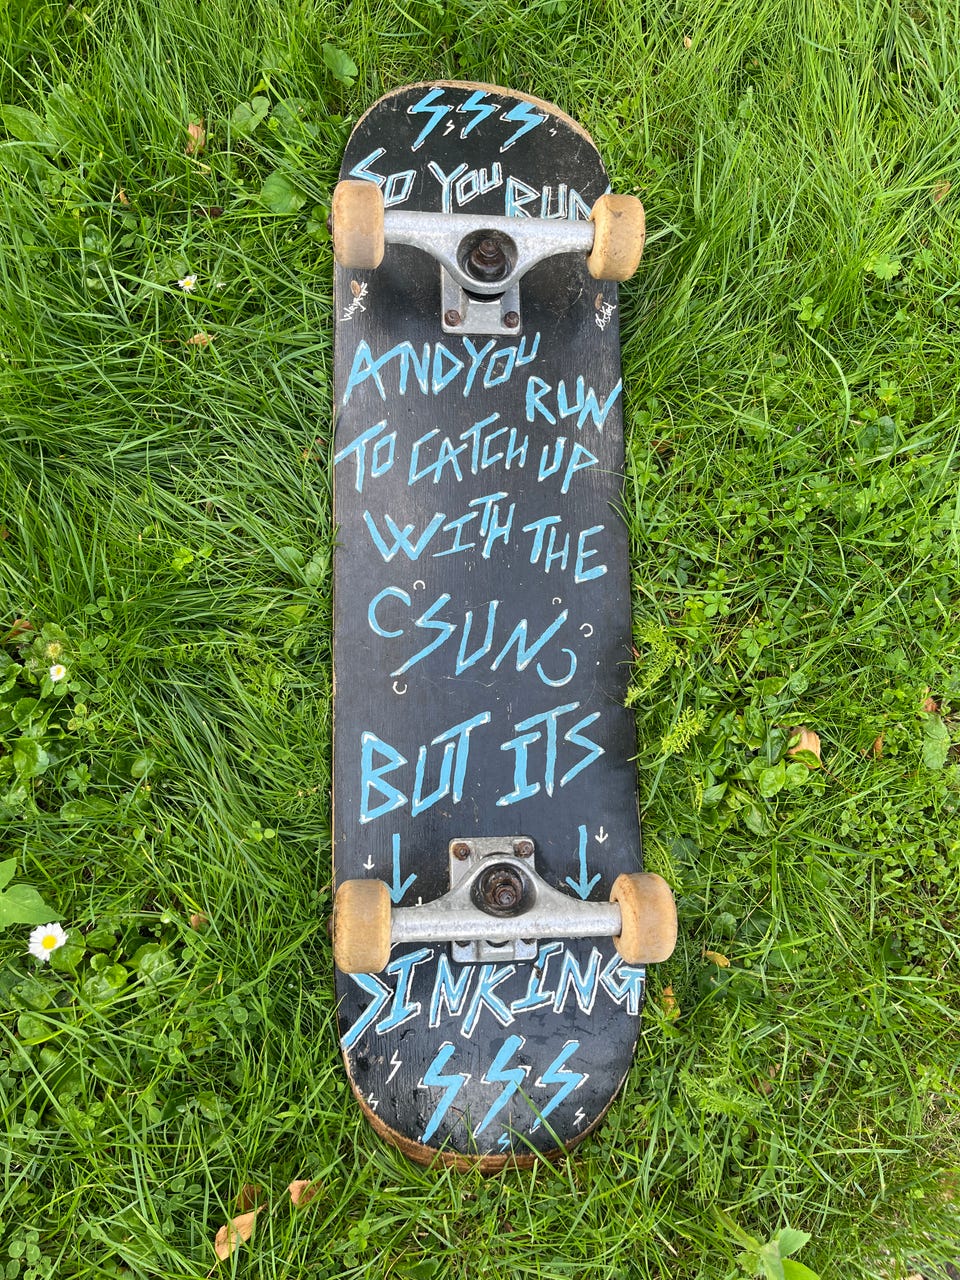 SO YOU RUN
AND YOU RUN
TO CATCH UP
WITH THE
SUN
BUT ITS
SINKING